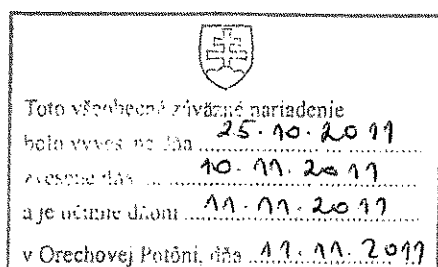 Toto všeobecné záväzné nariadenie
bolo vyvesené dňa 25.10.2011
zvesené dňa 10.11.2011
a je účinné dňom 11.11.2011
v Orechovej Potôni, dňa 11.11.2011